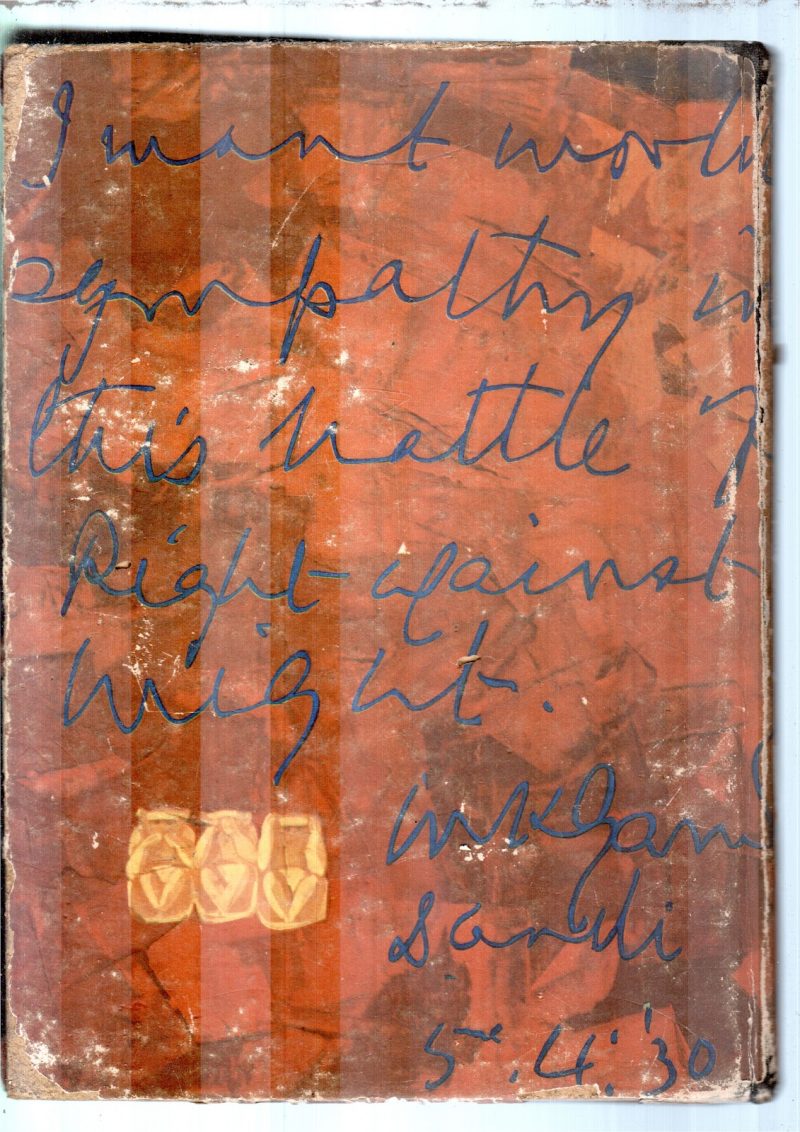 I want world
sympathy in
this battle of
Right against
might.
mkgandhi
Dandi
5.4.'30